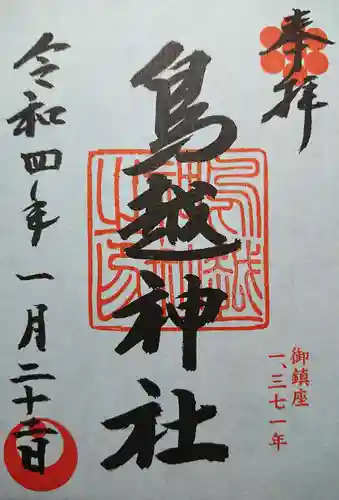 奉拝
鳥越神社
御鎮座
一、三七一年
令和四年一月二十二日